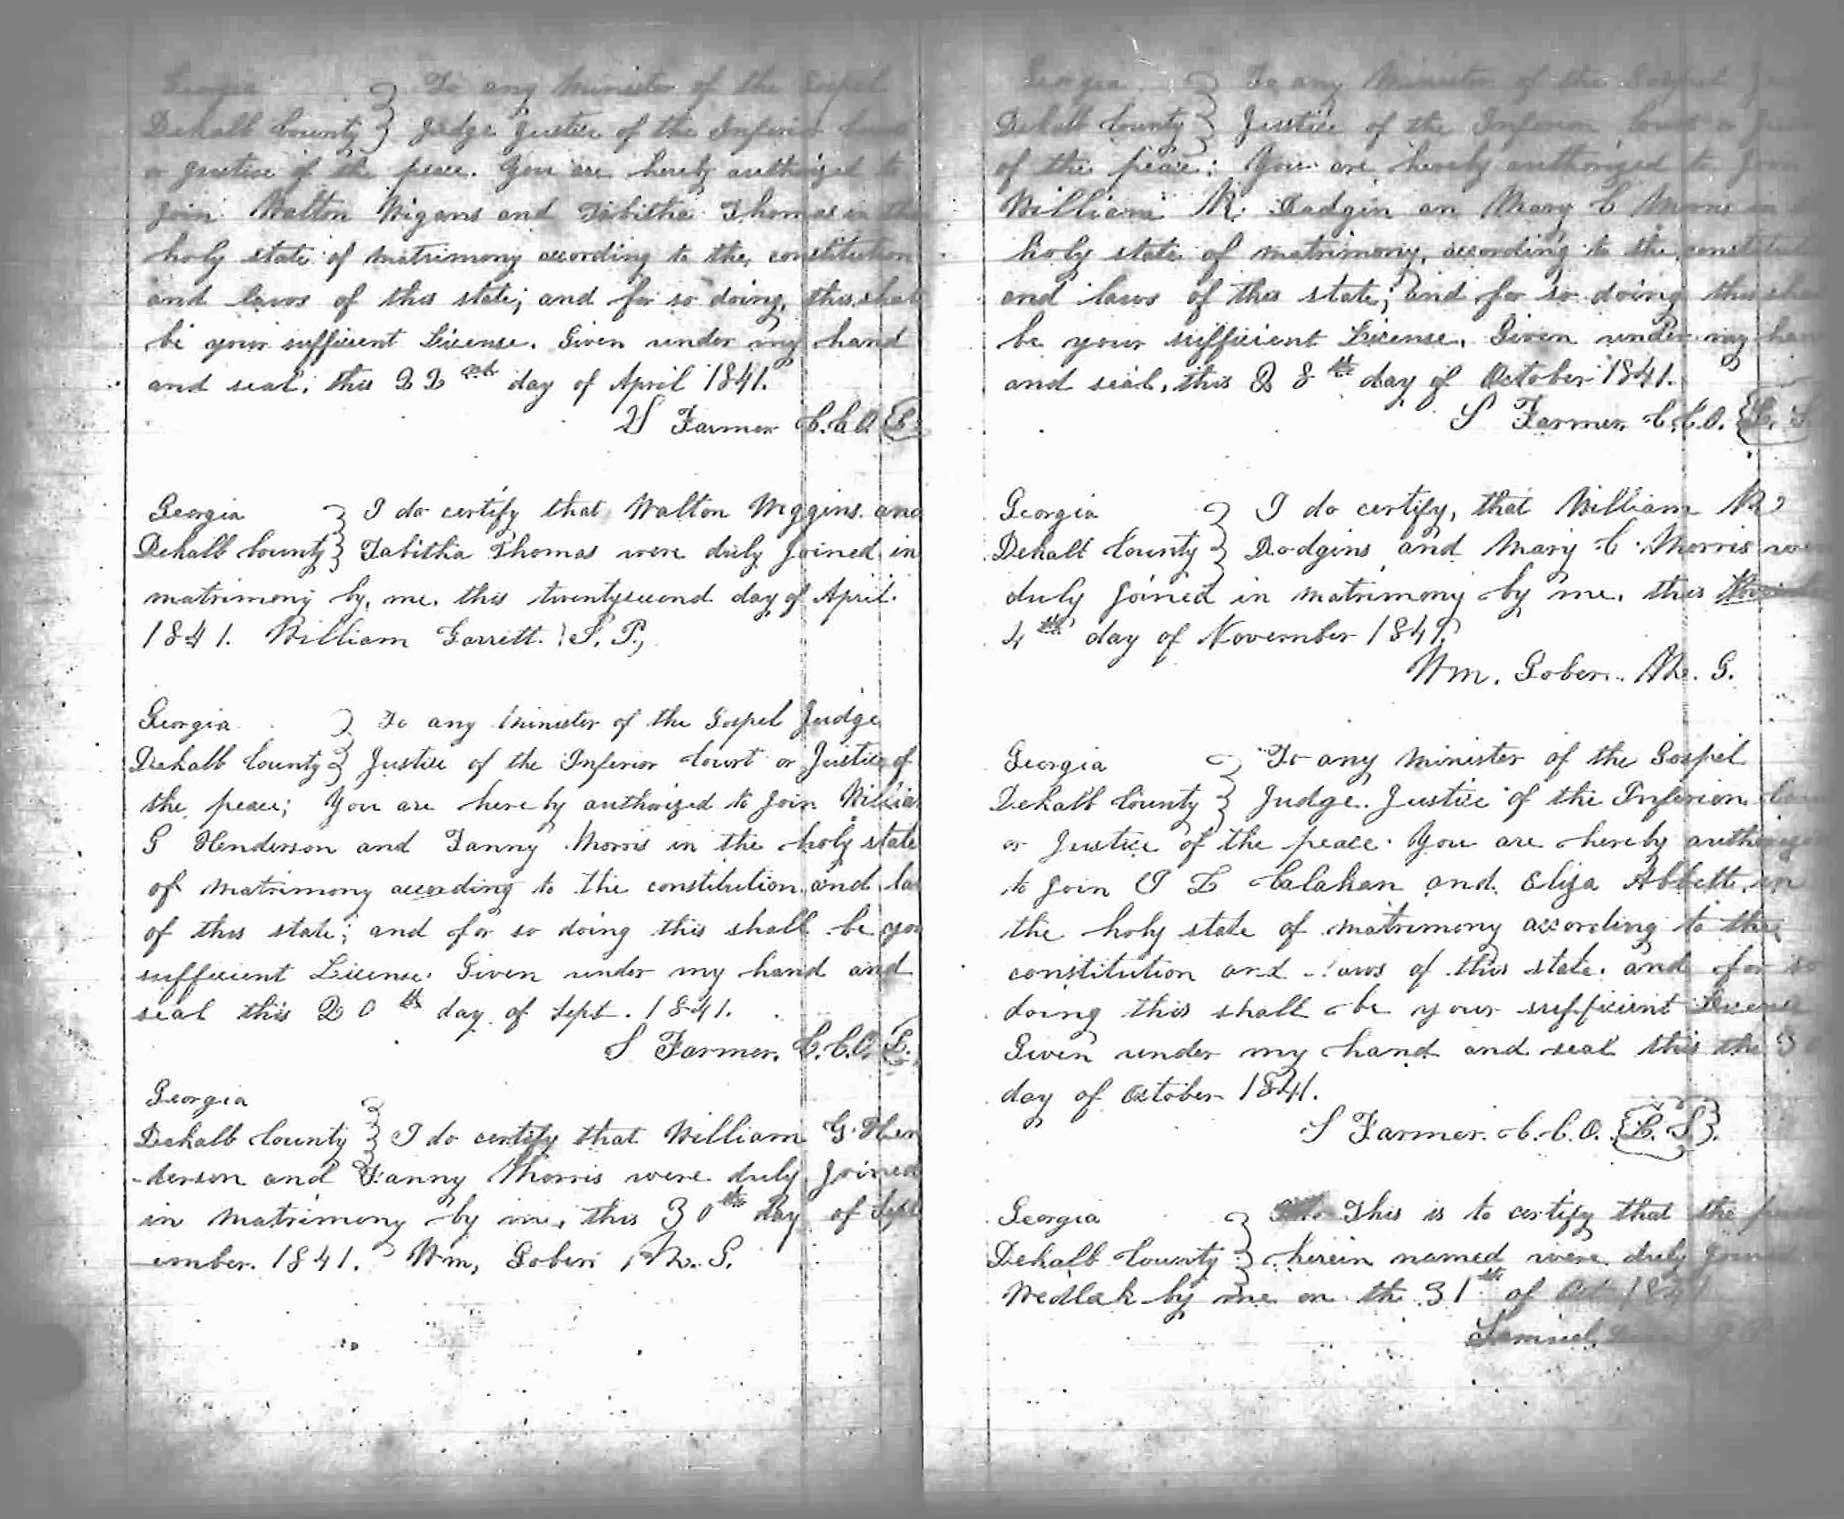 Georgia } To any Minister of the Gospel
Dekalb County } Judge Justice of the Inferior Court
or Justice of the peace. You are hereby authorized to
join Walton Wigans and Tabitha Thomas in the
holy state of matrimony according to the constitution
and laws of this state; and for so doing, this shall
be your sufficient License. Given under my hand
and seal, this 22nd day of April 1841.
S Farmer C.C.O. {L.
Georgia } I do certify that Walton Wiggins and
Dekalb County } Tabitha Thomas were duly joined in
matrimony by, me, this twentysecond day of April.
1841. William Garrett. J. P.,
Georgia } To any Minister of the Gospel Judge
Dekalb County } Justice of the Inferior Court or Justice of
the peace; You are here by authorized to join Willia
G Henderson and Fanny Morris in the holy state
of matrimony according to the constitution and la
of this state; and for so doing this shall be you
sufficient License. Given under my hand and
seal this 20th day of Sept. 1841.
S Farmer. C.C.O. {L.
Georgia
Dekalb County } I do certify that William G. Hen
-derson and Fanny Morris were duly joined
in matrimony by me, this 30th day of Sept
-ember. 1841. Wm, Gober, M. G.
Georgia } To any Minister of the Gospel
Dekalb County } Justice of the Inferior Court or
of the peace: You are hereby authorized to join
William R. Dodgin an Mary C Morris in
holy state of matrimony, according to the constitut
and laws of this state; and for so doing this shal
be your sufficient License. Given under my han
and seal, this 28th day of October 1841.
S Farmer C.C.O. {L. S
Georgia } I do certify, that William R
Dekalb County } Dodgins and Mary C. Morris we
duly joined in matrimony by me, this
4th day of November 1841.
Wm. Gober. M. G.
Georgia } To any Minister of the Gospel
Dekalb County } Judge. Justice of the Inferior Cou
or Justice of the peace. You are hereby authorize
to join J L Calahan and Eliza Abbett, in
the holy state of matrimony according to the
constitution and laws of this state. and for so
doing this shall be your sufficient License
Given under my hand and seal this the 30
day of October 1841.
S Farmer. C.C.O. {L. S}.
Georgia } This is to certify that the
Dekalb County } herein named were duly joined
Wedlak by me on the 31st of Oct 1841
Samuel